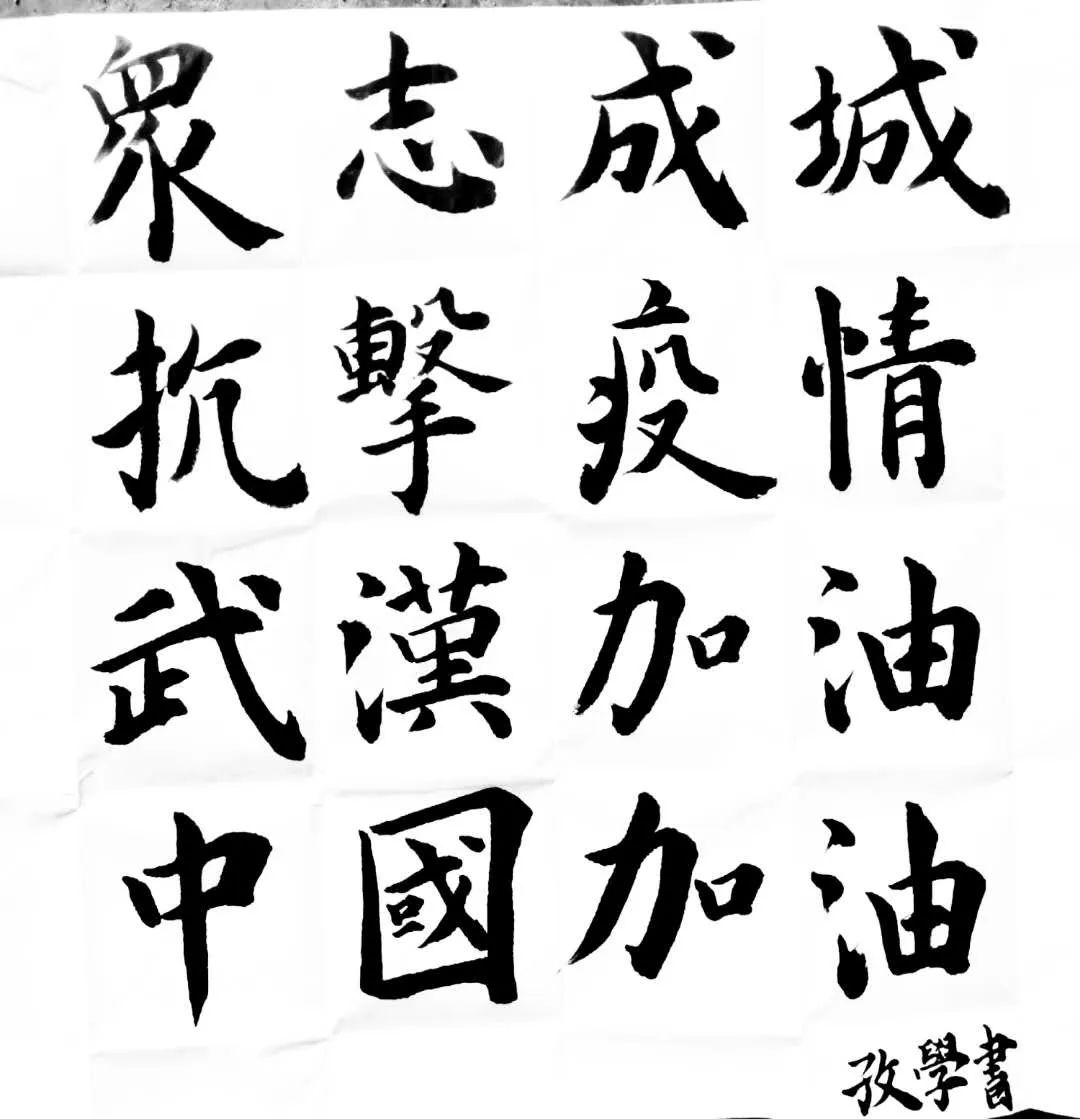 眾志成城
抗擊疫情
武漢加油
中國加油
孜學書